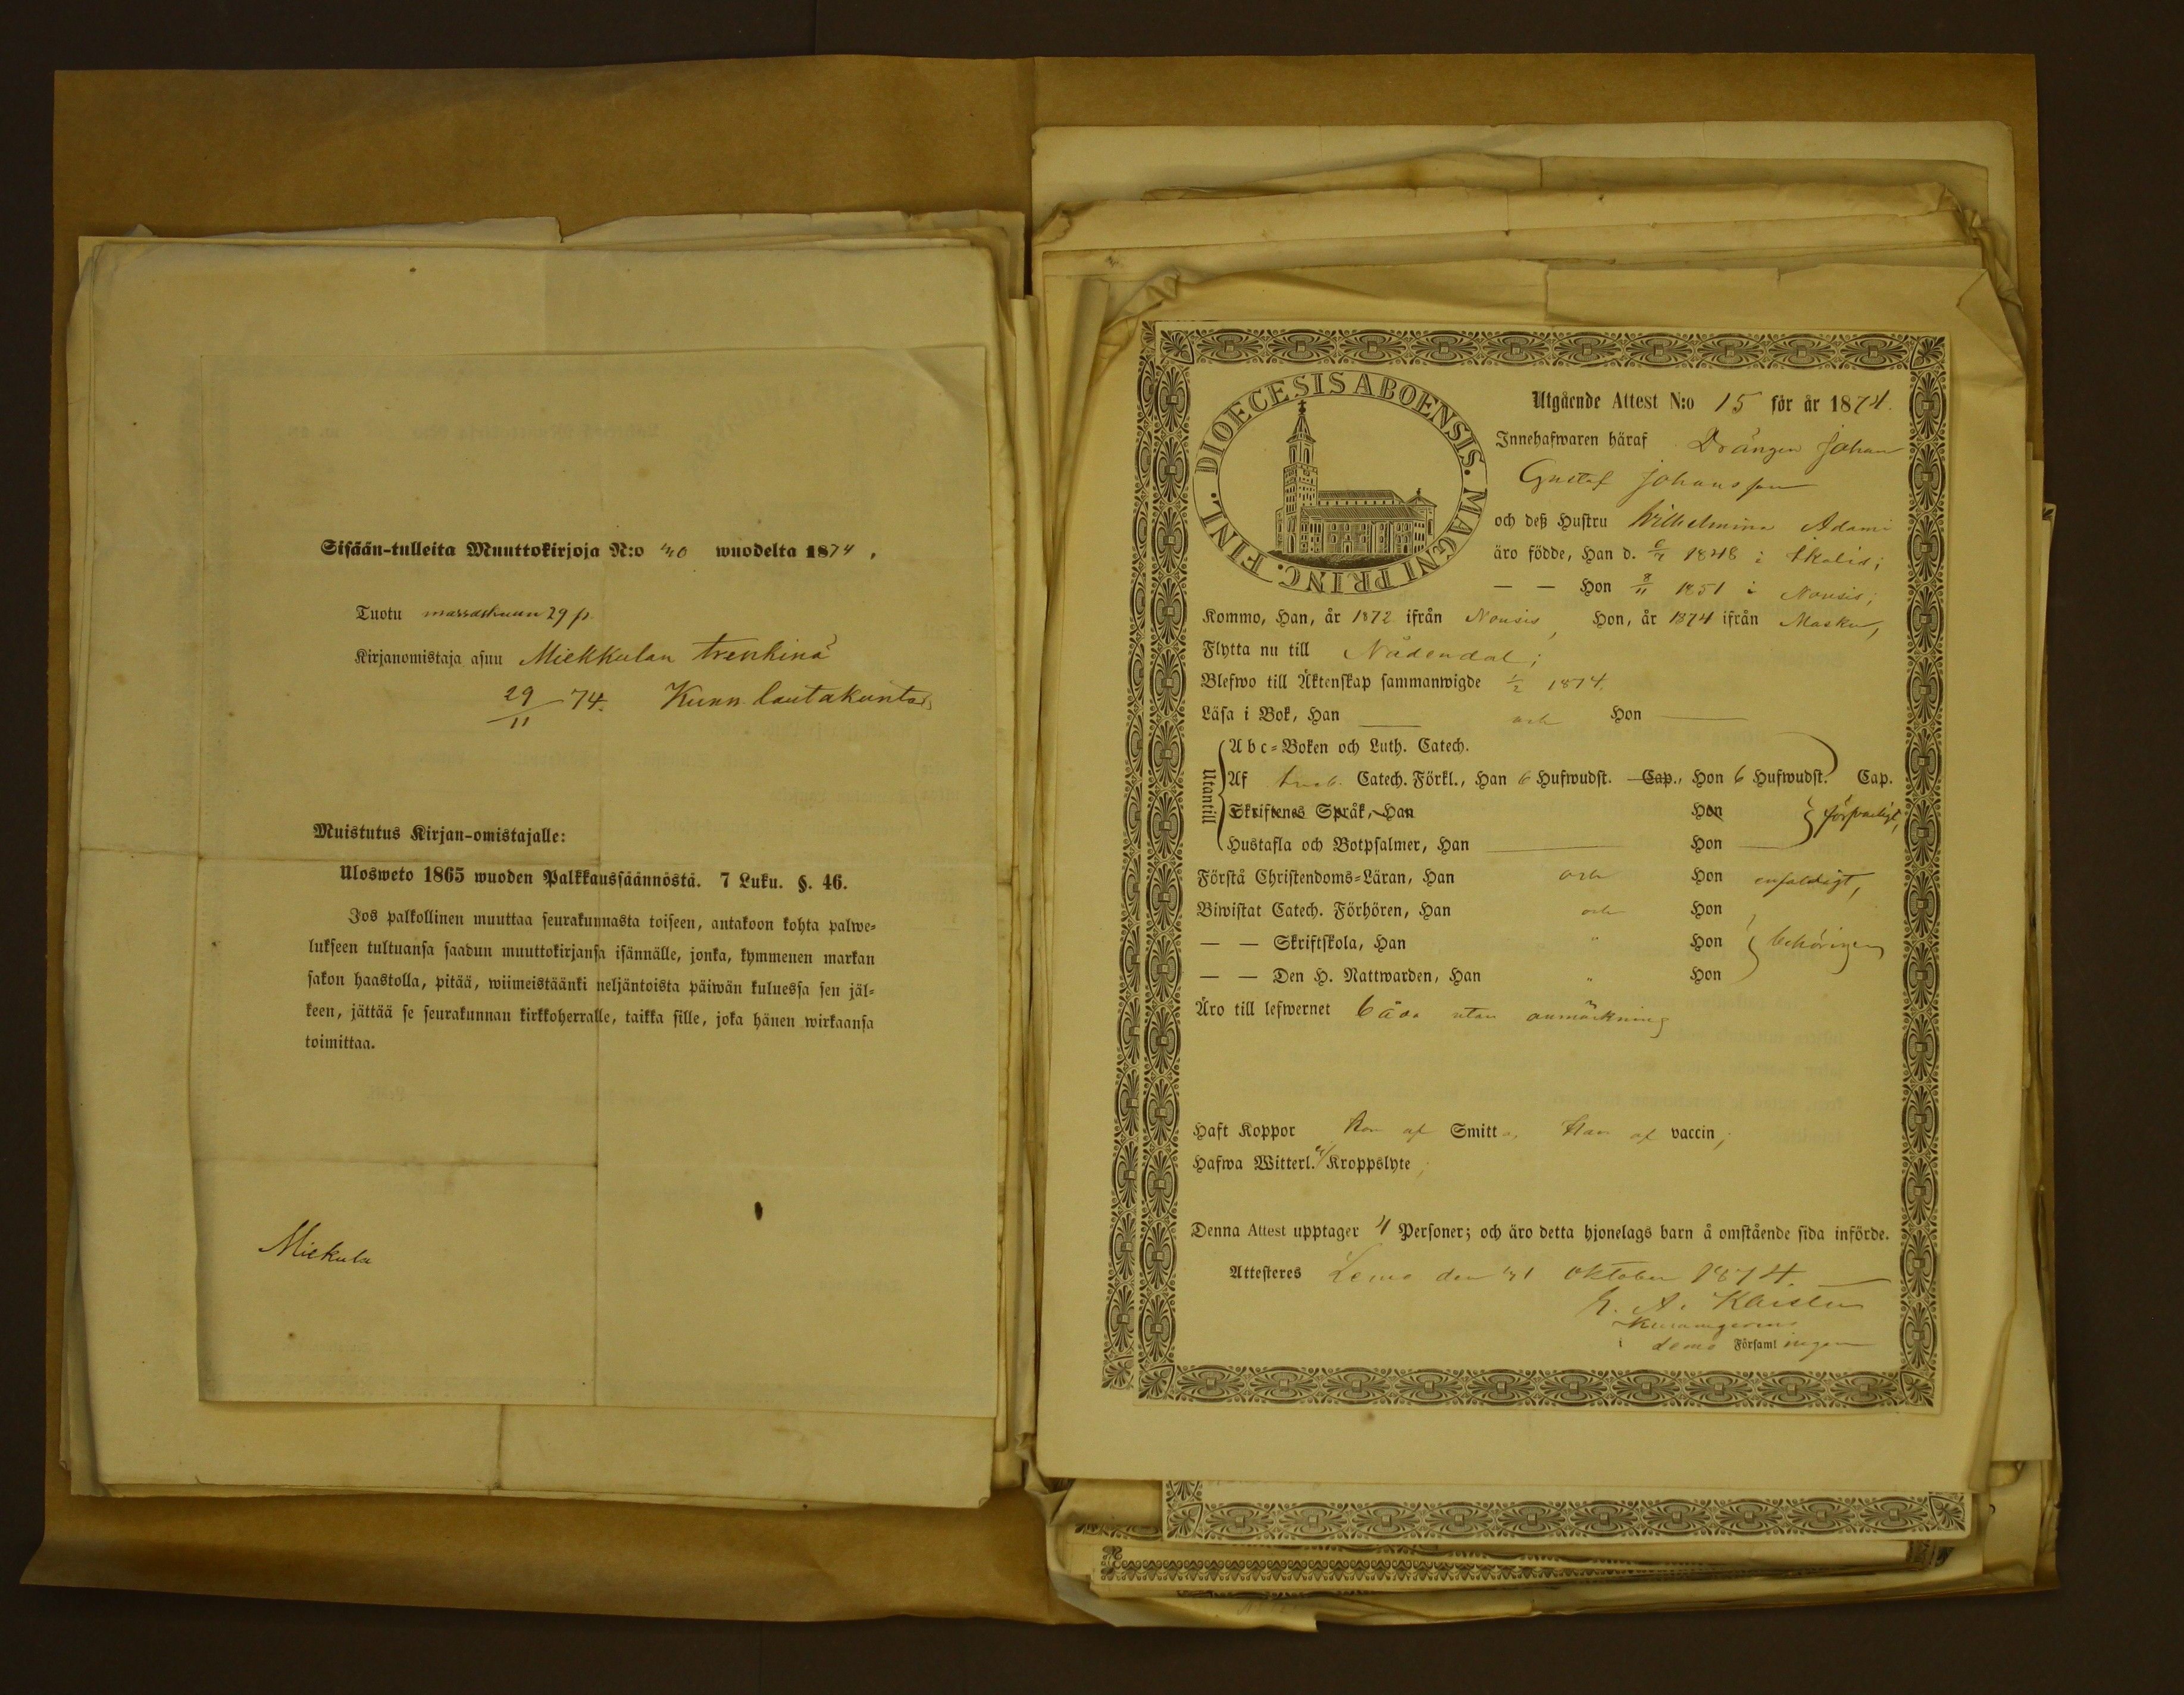 Sisään-tulleita Muuttokirjoja N:o 40 wuodelta 1874.
Tuotu marraskuun 29 p.
Kirjanomistaja asuu Miekkulan trenkinä
29/11 74. Kunn. lautakunta
Muistutus Kirjan-omistajalle:
Ulosweto 1865 wuoden Palkkaussäännöstä. 7 Luku. §. 46.
Jos palkollinen muuttaa seurakunnasta toiseen, antakoon kohta palwe-
lukseen tultuansa saadun muuttokirjansa isännälle, jonka, kymmenen markan
sakon haastolla, pitää, wiimeistäänki neljäntoista päiwän kuluessa sen jäl-
keen, jättää se seurakunnan kirkkoherralle, taikka sille, joka hänen wirkaansa
toimittaa.
Miekula
DIOECESIS ABOENSIS. MAGNI PRINC. FINL.
Utgående Attest N:o 15 för år 1874.
Innehafwaren häraf Drängen Johan
Gustaf Johansson
och deß Hustru Wilhelmina Adami
äro födde, Han d. 1848 i
— — Hon 8/11 1851 i Nousis;
Kommo, Han, år 1872 ifrån Nousis, Hon, år 1874 ifrån Masku,
Flytta nu till Nådendal;
Blefwo till Äktenskap sammanwigde 1/2 1874.
Läsa i Bok, Han och Hon
Utantill
Abc-Boken och Luth. Catech.
Af Catech. Förkl., Han 6 Hufwudst. Cap., Hon 6 Hufwudst. Cap.
Skriftenes Språk, Han Hon försvarligt,
Hustafla och Botpsalmer, Han Hon
Förstå Christendoms-Läran, Han och Hon enfaldigt,
Biwistat Catech. Förhören, Han och Hon
— — Skriftskola, Han " Hon behörigen
— — Den H. Nattwarden, Han " Hon
Äro till lefwernet båda utan anmärkning
Haft Koppor Hon af Smitta, Han af vaccin;
Hafwa Witterl. Kroppslyte;
Denna Attest upptager 4 Personer; och äro detta hjonelags barn å omstående sida införde.
Attesteres Lemo den 31 Oktober 1874.
A. Karsten
i Lemo Församlingen